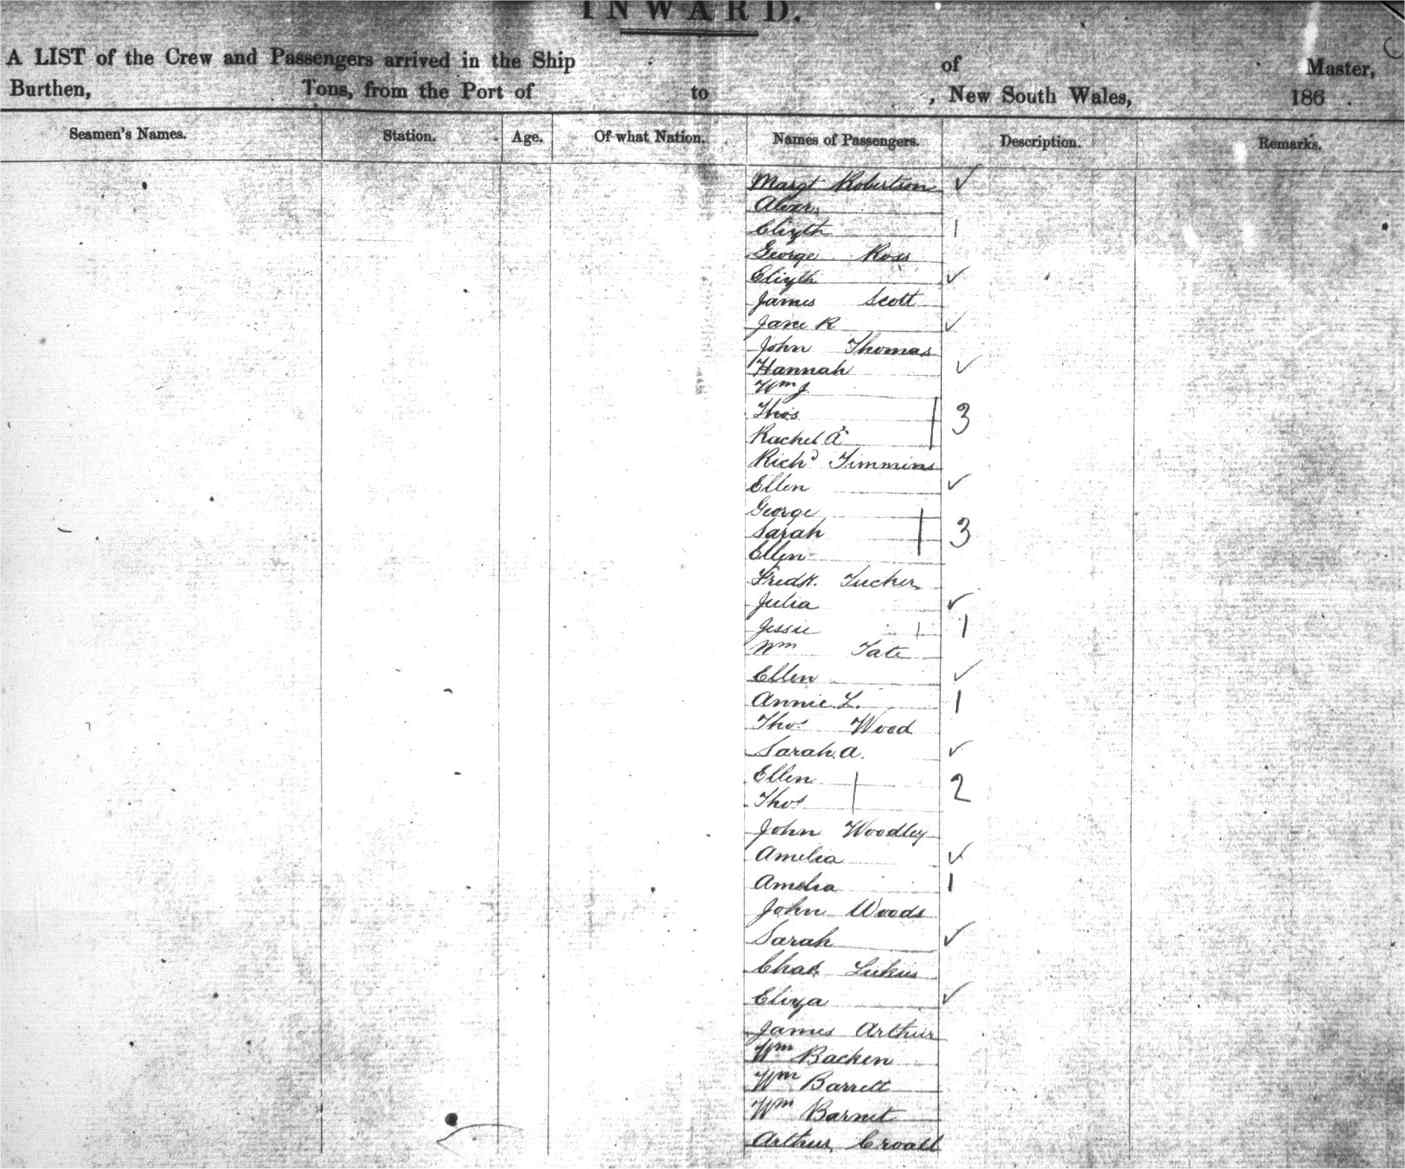 INWARD.
A LIST of the Crew and Passengers arrived in the Ship of Master,
Burthen, Tons, from the Port of to , New South Wales, 186 .
Seamen's Names. Station. Age. Of what Nation. Names of Passengers. Description. Remarks.
Margt Robertson ✓
Alexr
Elizth 1
George Ross
Elizth ✓
James Scott
Jane R ✓
John Thomas
Hannah ✓
Wm J
Thos 3
Rachel A
Richd Timmins
Ellen ✓
George
Sarah 3
Ellen
Fredk. Tucker
Julia ✓
Jessie 1
Wm Tate
Ellen ✓
Annie L. 1
Thos Wood
Sarah A. ✓
Ellen 2
Thos
John Woodley
Amelia ✓
Amelia 1
John Woods
Sarah ✓
Chas Lukins
Eliza ✓
James Arthur
Wm Backen
Wm Barrett
Wm Barnet
Arthur Croall